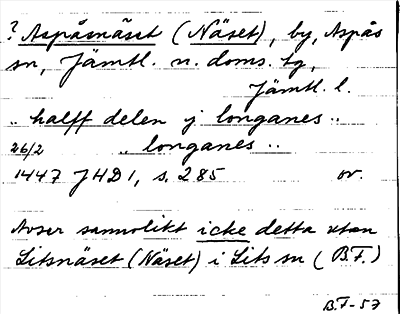 ? Aspåsnäset (Näset), by, Aspås
sn, Jämtl. n. doms. tg,
Jämtl. l.
.. halff delen j longanes ..
26/2 .. longanes ..
1447 JHD 1, s. 285 or.
Avser sannolikt icke detta utan
Litsnäset (Näset) i Lits sn (B.F.)
B.F-57